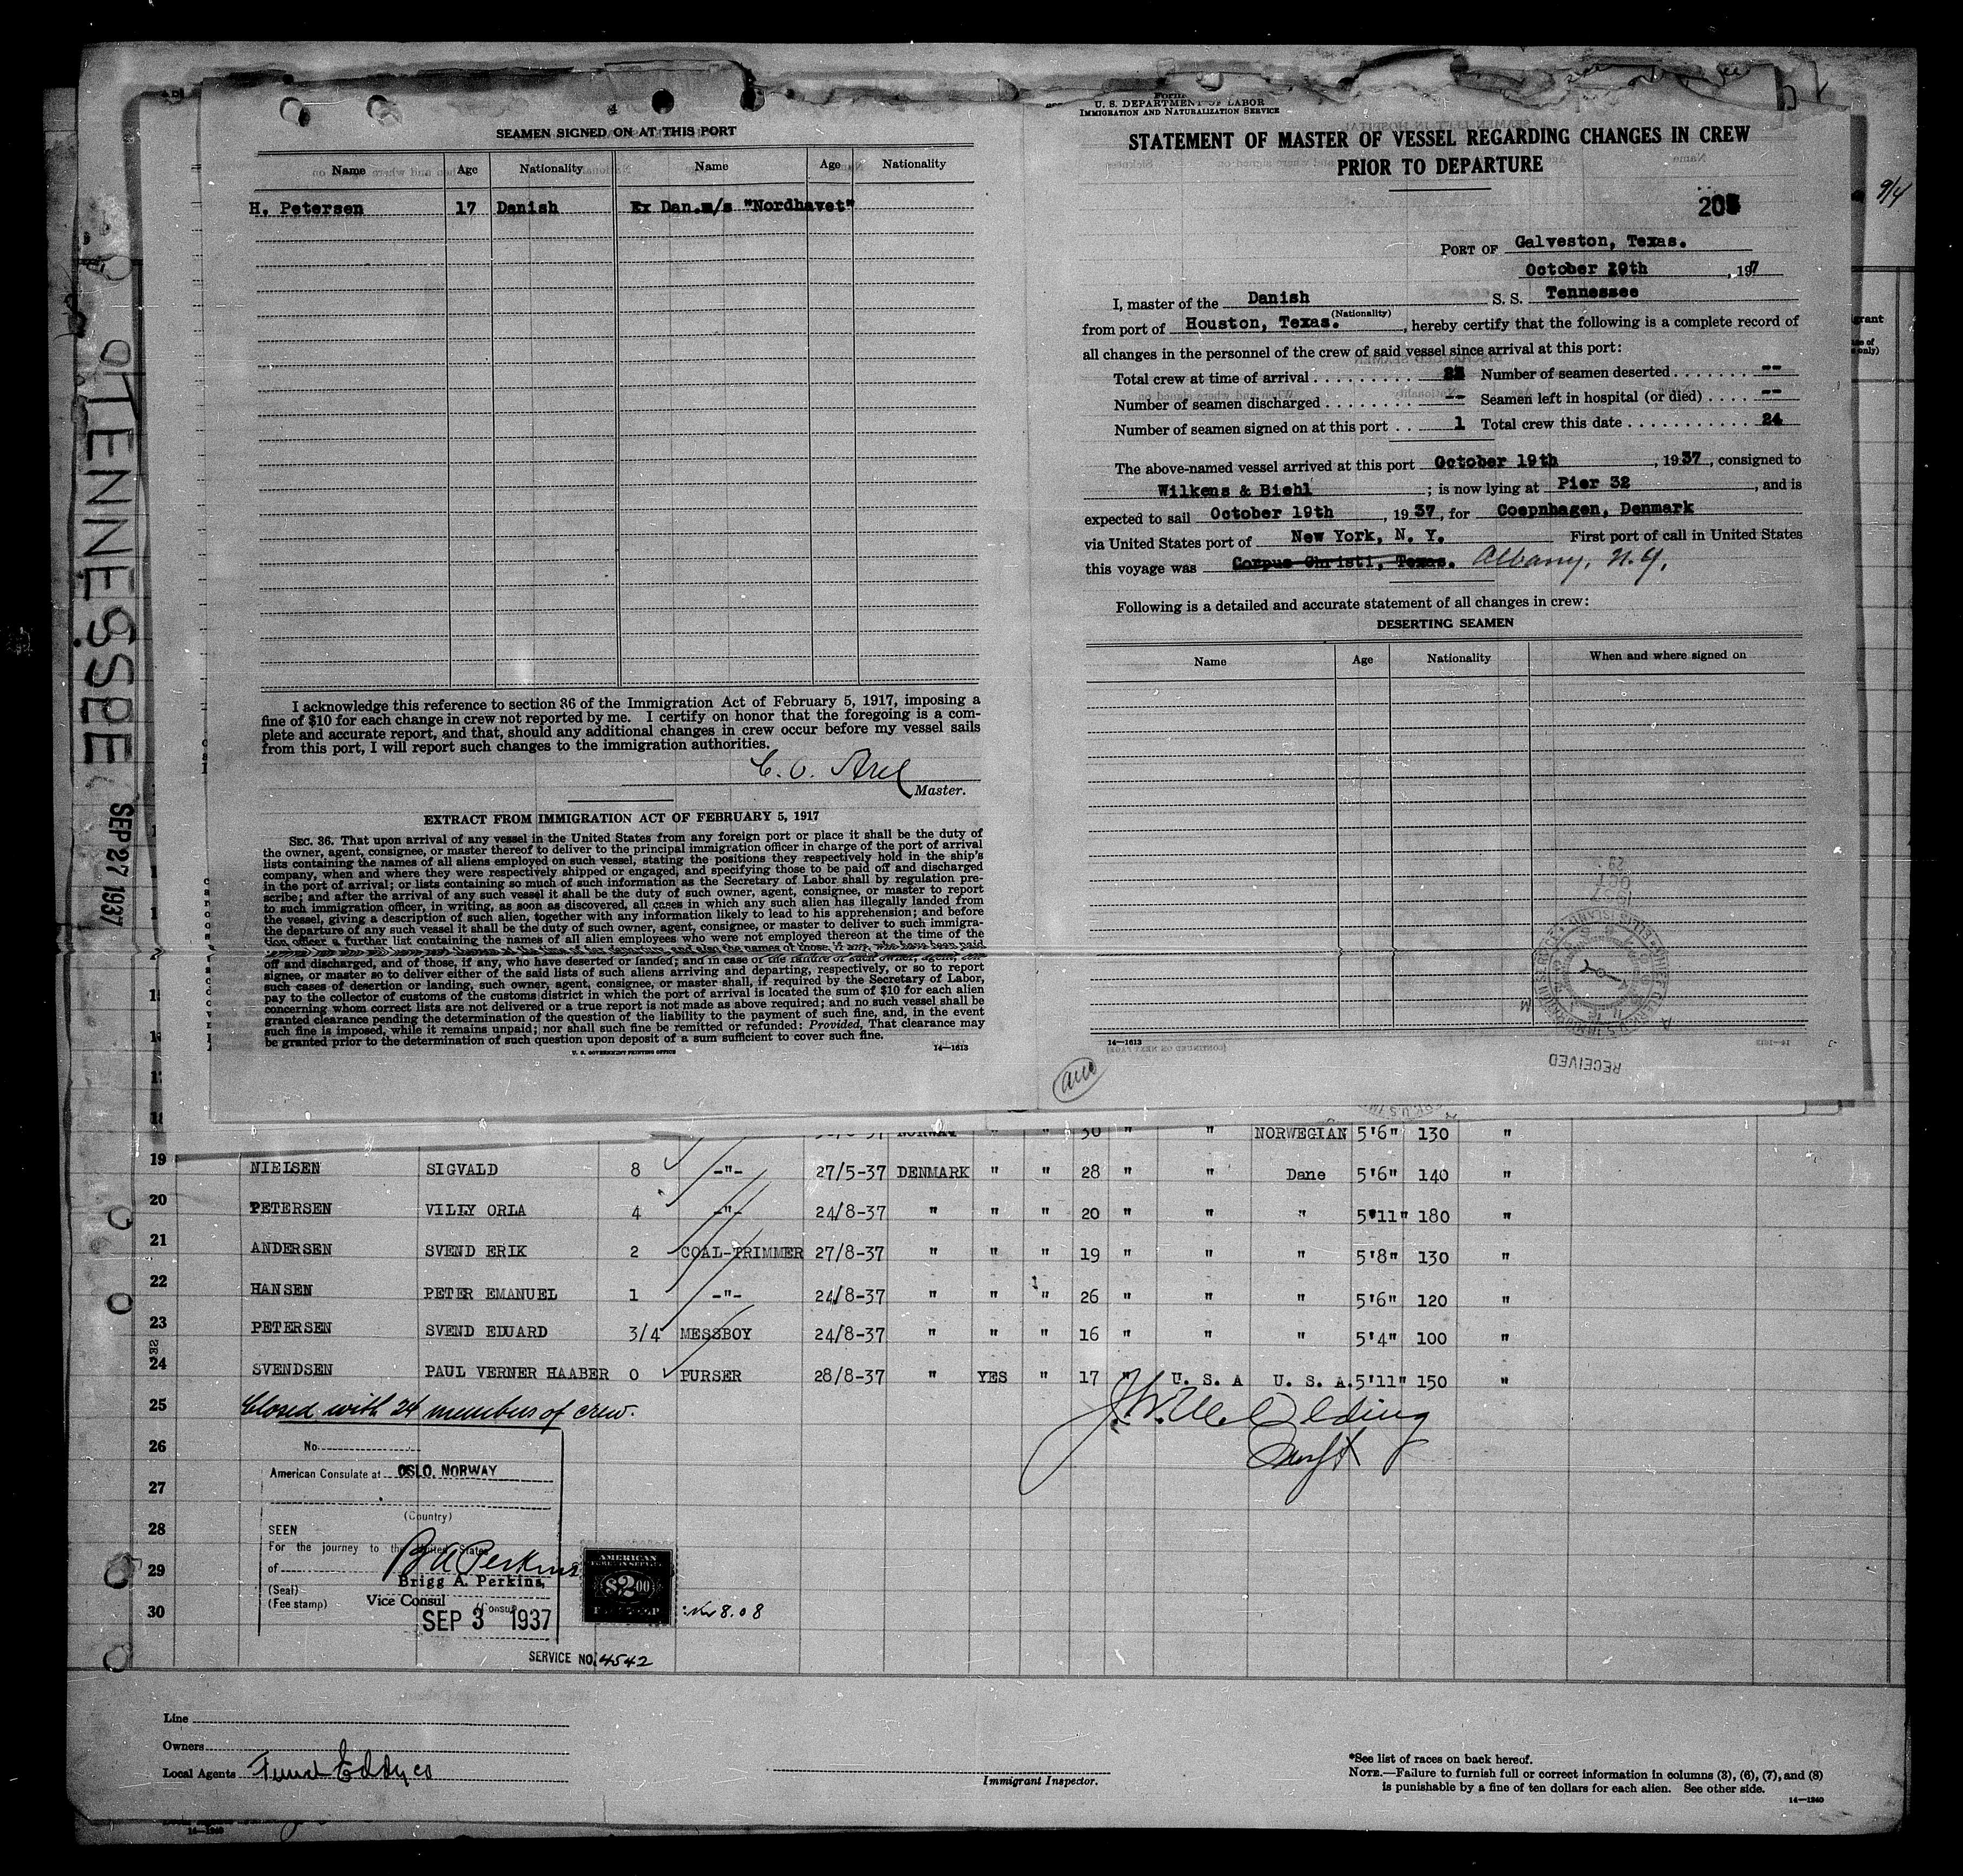 SEAMEN SIGNED ON AT THIS PORT
Name Age Nationality Name Age Nationality
H. Petersen 17 Danish Ex Dan.m/s "Nordhavet"
I acknowledge this reference to section 36 of the Immigration Act of February 5, 1917, imposing a
fine of $10 for each change in crew not reported by me. I certify on honor that the foregoing is a com-
plete and accurate report, and that, should any additional changes in crew occur before my vessel sails
from this port, I will report such changes to the immigration authorities.
Master.
EXTRACT FROM IMMIGRATION ACT OF FEBRUARY 5, 1917
SEC. 36. That upon arrival of any vessel in the United States from any foreign port or place it shall be the duty of
the owner, agent, consignee, or master thereof to deliver to the principal immigration officer in charge of the port of arrival
lists containing the names of all aliens employed on such vessel, stating the positions they respectively hold in the ship's
company, when and where they were respectively shipped or engaged, and specifying those to be paid off and discharged
in the port of arrival; or lists containing so much of such information as the Secretary of Labor shall by regulation pre-
scribe; and after the arrival of any such vessel it shall be the duty of such owner, agent, consignee, or master to report
to such immigration officer, in writing, as soon as discovered, all cases in which any such alien has illegally landed from
the vessel, giving a description of such alien, together with any information likely to lead to his apprehension; and before
the departure of any such vessel it shall be the duty of such owner, agent, consignee, or master to deliver to such immigra-
tion officer a further list containing the names of all alien employees who were not employed thereon at the time of the
and also the names of those, if any, who have been paid
off and discharged, and of those, if any, who have deserted or landed; and in case of the failure of such owner, agent, con-
signee, or master so to deliver either of the said lists of such aliens arriving and departing, respectively, or so to report
such cases of desertion or landing, such owner, agent, consignee, or master shall, if required by the Secretary of Labor,
pay to the collector of customs of the customs district in which the port of arrival is located the sum of $10 for each alien
concerning whom correct lists are not delivered or a true report is not made as above required; and no such vessel shall be
granted clearance pending the determination of the question of the liability to the payment of such fine, and, in the event
such fine is imposed, while it remains unpaid; nor shall such fine be remitted or refunded: Provided, That clearance may
be granted prior to the determination of such question upon deposit of a sum sufficient to cover such fine.
U. S. GOVERNMENT PRINTING OFFICE 14—1613
U. S. DEPARTMENT OF LABOR
IMMIGRATION AND NATURALIZATION SERVICE
STATEMENT OF MASTER OF VESSEL REGARDING CHANGES IN CREW
PRIOR TO DEPARTURE
PORT OF Galveston, Texas.
October 20th, 197
I, master of the Danish S. S. Tennessee
(Nationality)
from port of Houston, Texas., hereby certify that the following is a complete record of
all changes in the personnel of the crew of said vessel since arrival at this port:
Total crew at time of arrival Number of seamen deserted --
Number of seamen discharged -- Seamen left in hospital (or died) --
Number of seamen signed on at this port 1 Total crew this date 24
The above-named vessel arrived at this port October 19th, 1937, consigned to
Wilkens & Biehl; is now lying at Pier 32, and is
expected to sail October 19th, 1937, for Coepnhagen, Denmark
via United States port of New York, N. Y. First port of call in United States
this voyage was Corpus Christi, Texas. Albany, N.Y.
Following is a detailed and accurate statement of all changes in crew:
DESERTING SEAMEN
Name Age Nationality When and where signed on
14—1613
RECEIVED
TENNESSEE
SEP 27 1937
9/4
NORWEGIAN 5'6" 130 "
19 NIELSEN SIGVALD 8 -"- 27/5-37 DENMARK " " 28 " " Dane 5'6" 140 "
20 PETERSEN VILLY ORLA 4 -"- 24/8-37 " " " 20 " " " 5'11" 180 "
21 ANDERSEN SVEND ERIK 2 COAL-TRIMMER 27/8-37 " " " 19 " " " 5'8" 130 "
22 HANSEN PETER EMANUEL 1 -"- 24/8-37 " " " 26 " " " 5'6" 120 "
23 PETERSEN SVEND EDUARD 3/4 MESSBOY 24/8-37 " " " 16 " " " 5'4" 100 "
24 SVENDSEN PAUL VERNER HAABER 0 PURSER 28/8-37 " YES " 17 " U. S. A U. S. A. 5'11" 150 "
25 Closed with 24 members of crew.
26
27
28
29
30
No.
American Consulate at OSLO, NORWAY
(Country)
SEEN
For the journey to the United States
of
(Seal)
(Fee stamp)
Brigg A. Perkins,
Vice Consul
SEP 3 1937
SERVICE NO. 4542
AMERICAN
$2.00
8.08
Line
Owners
Local Agents
Immigrant Inspector.
*See list of races on back hereof.
NOTE.—Failure to furnish full or correct information in columns (3), (6), (7), and (8)
is punishable by a fine of ten dollars for each alien. See other side.
14—1240
14—1240